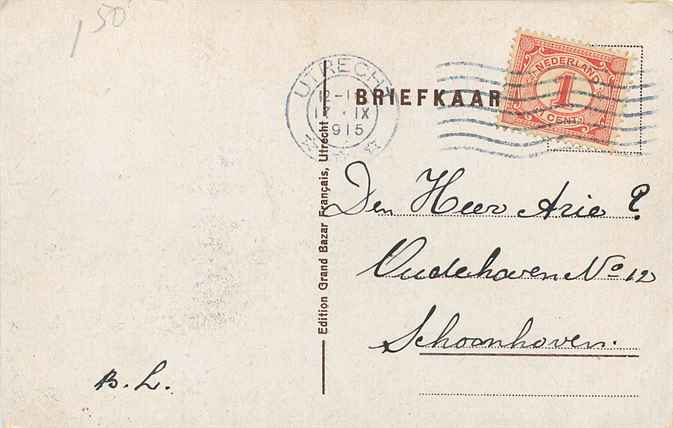 1 50
UTRECHT
12-1
12 · IX
1915
BRIEFKAAR
NEDERLAND
1
CENT
Edition Grand Bazar Français, Utrecht
Den Heer Arie P.
Oudehaven No 12
Schoonhoven.
B. L.